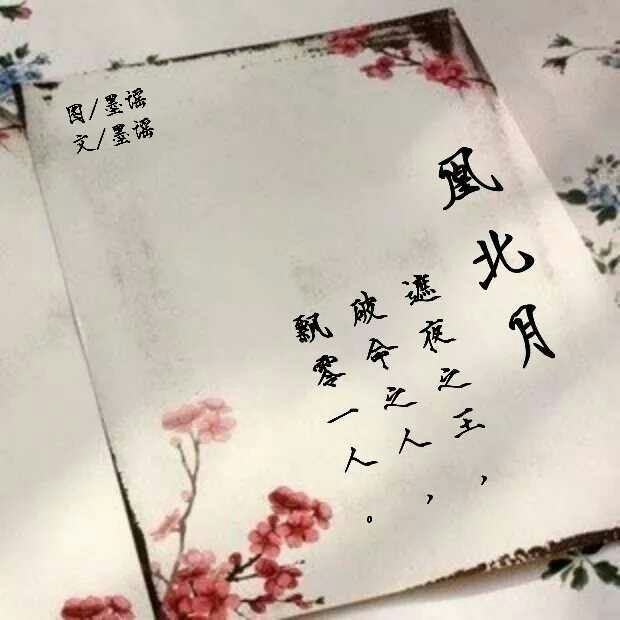 图/墨谣
文/墨谣
凰北月
遮夜之王，
破命之人，
飘零一人。